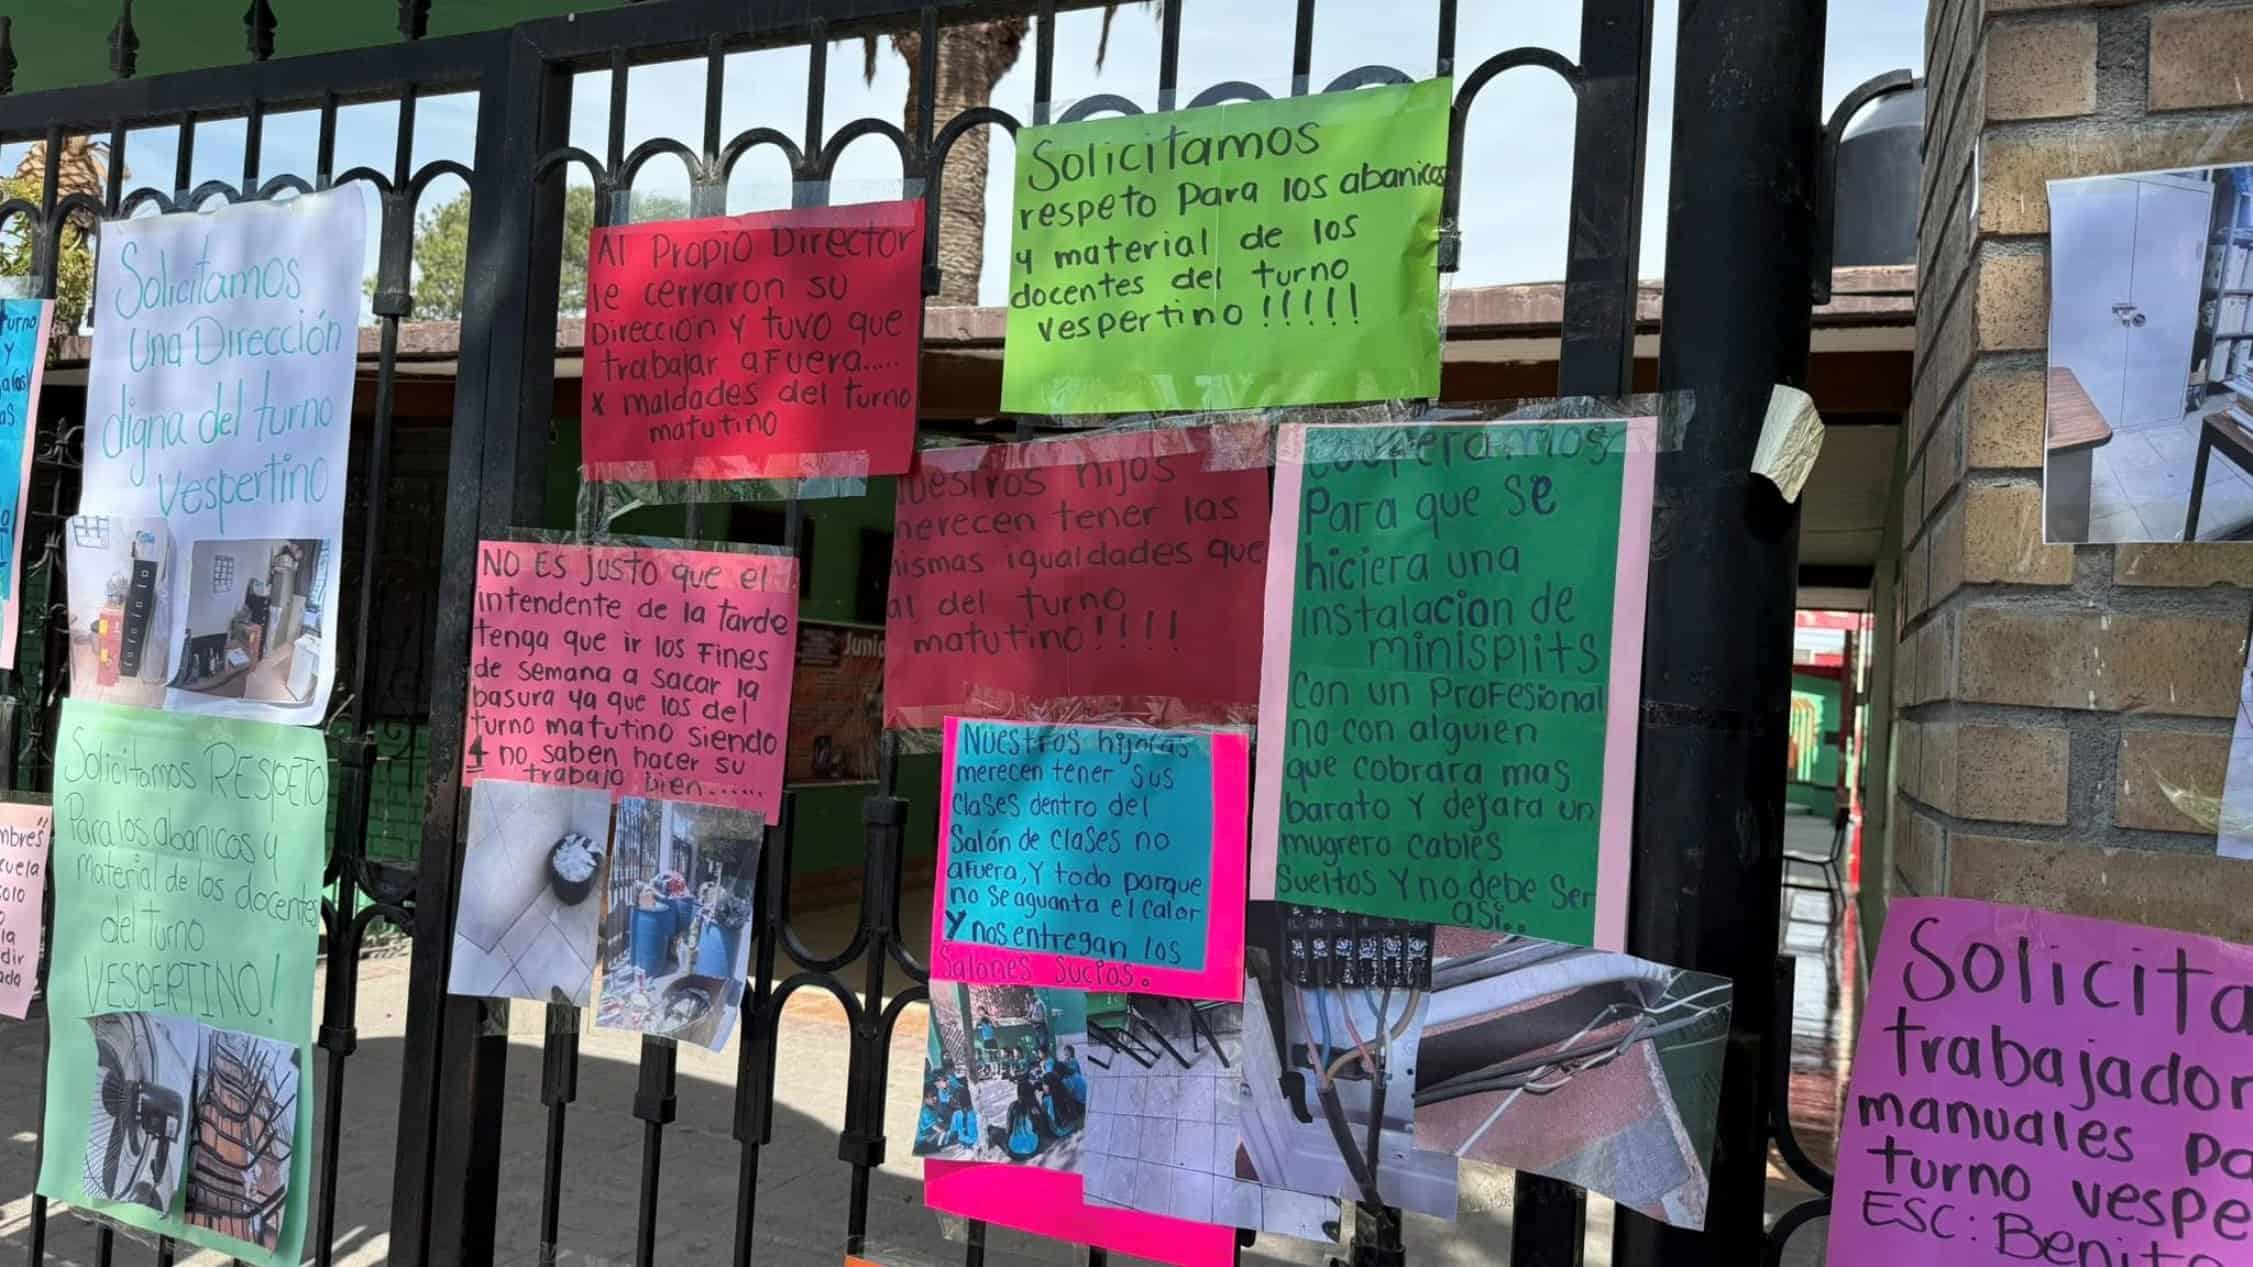 turno
y
Solicitamos
una Dirección
digna del turno
vespertino
Solicitamos RESPETO
Para los abanicos y
material de los docentes
del turno
VESPERTINO!
Al Propio Director
le cerraron su
Dirección y tuvo que
trabajar afuera.....
x maldades del turno
matutino
NO ES justo que el
intendente de la tarde
tenga que ir los Fines
de semana a sacar la
basura ya que los del
turno matutino siendo
4 no saben hacer su
trabajo bien......
Solicitamos
respeto Para los abanicos
y material de los
docentes del turno
vespertino !!!!!
Nuestros hijos
merecen tener las
mismas igualdades que
al del turno
matutino!!!!
Nuestros hijos/as
merecen tener sus
clases dentro del
Salón de clases no
afuera, Y todo porque
no se aguanta el calor
Y nos entregan los
Salones sucios.
Cooperamos
Para que se
hiciera una
instalacion de
minisplits
Con un Profesional
no con alguien
que cobrara mas
barato Y dejara un
mugrero cables
sueltos Y no debe ser
asi..
Solicita
trabajador
manuales pa
turno vespe
ESC: Benito